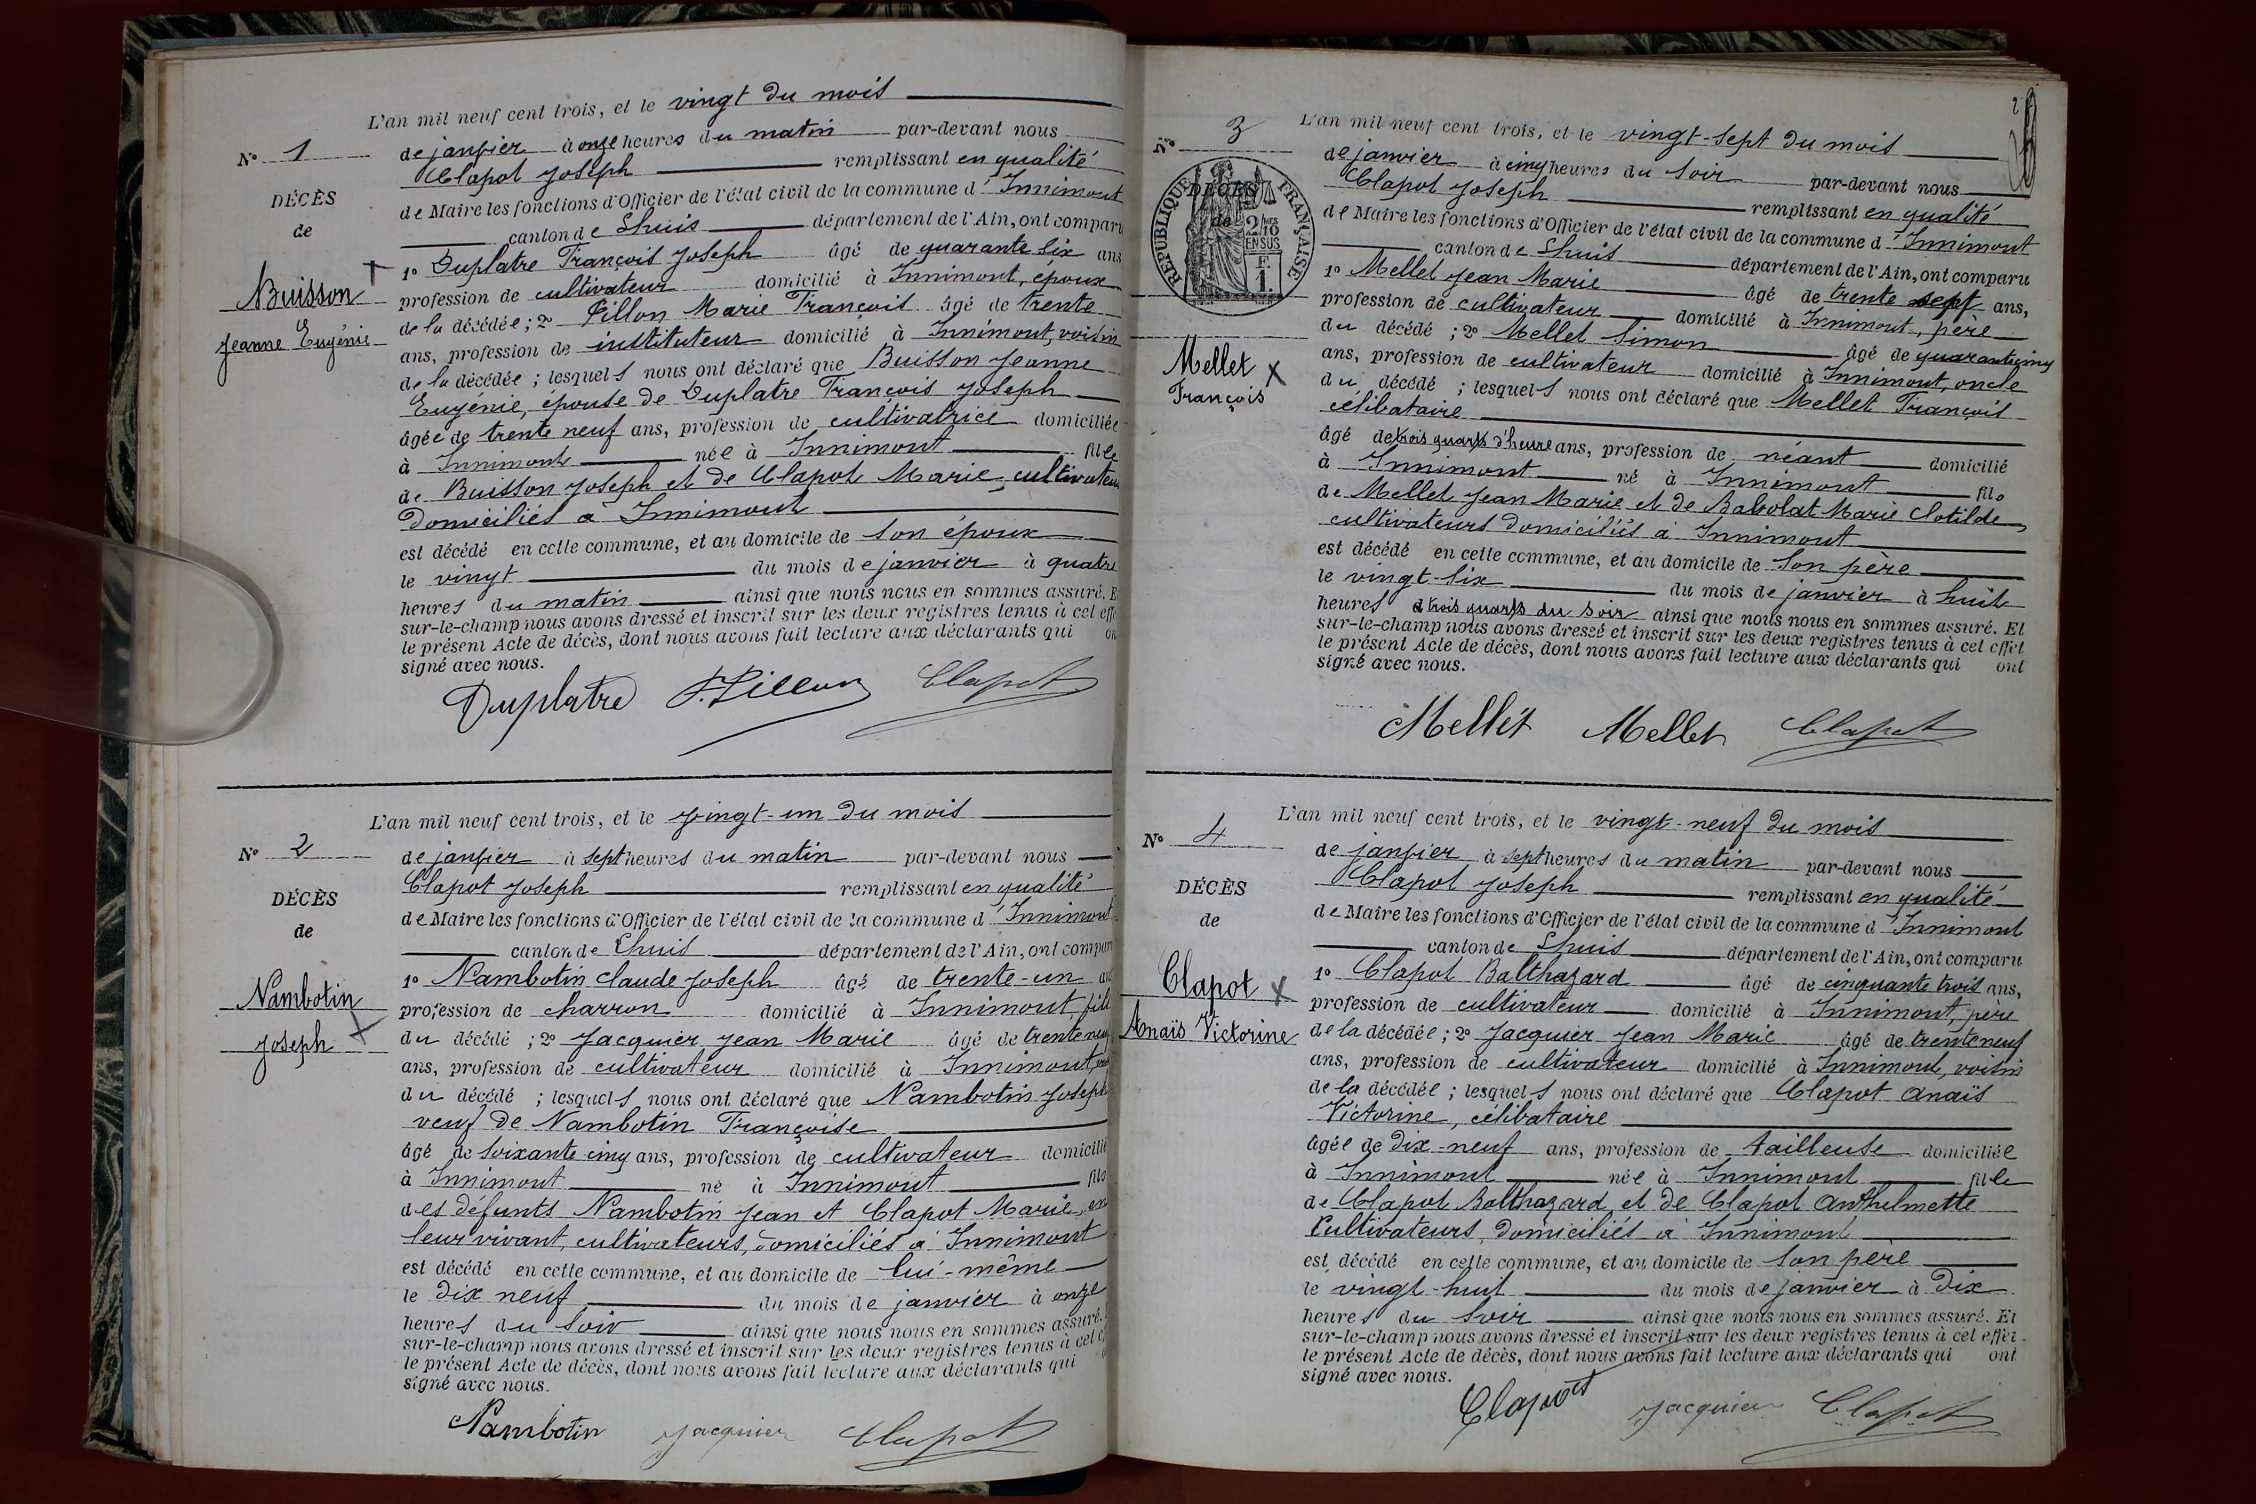 L'an mil neuf cent trois, et le vingt du mois
N° 1
de janvier à onze heures du matin par-devant nous
Clapot Joseph remplissant en qualité
DÉCÈS
de Maire les fonctions d'Officier de l'état civil de la commune d'Innimont
de
canton de Lhuis département de l'Ain, ont comparu
1° Duplatre François Joseph âgé de quarante six ans
Buisson
profession de cultivateur domicilié à Innimont, époux
Jeanne Eugénie
de la décédée; 2° Pillon Marie François âgé de trente
ans, profession de instituteur domicilié à Innimont, voisin
de la décédée; lesquels nous ont déclaré que Buisson Jeanne
Eugénie, épouse de Duplatre François Joseph
âgée de trente neuf ans, profession de cultivatrice domiciliée
à Innimont née à Innimont fille
de Buisson Joseph et de Clapot Marie, cultivateurs
domiciliés à Innimont
est décédé en cette commune, et au domicile de son époux
le vingt du mois de janvier à quatre
heures du matin ainsi que nous nous en sommes assuré. E
sur-le-champ nous avons dressé et inscrit sur les deux registres tenus à cet effe
le présent Acte de décès, dont nous avons fait lecture aux déclarants qui on
signé avec nous.
Duplatre F. Pillon Clapot
L'an mil neuf cent trois, et le vingt-un du mois
N° 2
de janvier à sept heures du matin par-devant nous
Clapot Joseph remplissant en qualité
DÉCÈS
de Maire les fonctions d'Officier de l'état civil de la commune d'Innimont
de
canton de Lhuis département de l'Ain, ont compar
1° Nambotin Claude Joseph âgé de trente-un an
Nambotin
profession de charron domicilié à Innimont, fils
Joseph
du décédé; 2° Jacquier Jean Marie âgé de trente neuf
ans, profession de cultivateur domicilié à Innimont,
du décédé; lesquels nous ont déclaré que Nambotin Joseph
veuf de Nambotin Françoise
âgé de soixante cinq ans, profession de cultivateur domicilié
à Innimont né à Innimont fils
des défunts Nambotin Jean et Clapot Marie, en
leur vivant, cultivateurs, domiciliés à Innimont
est décédé en cette commune, et au domicile de lui-même
le dix neuf du mois de janvier à onze
heures du soir ainsi que nous nous en sommes assuré.
sur-le-champ nous avons dressé et inscrit sur les deux registres tenus à cet
le présent Acte de décès, dont nous avons fait lecture aux déclarants qui
signé avec nous.
Nambotin Jacquier Clapot
2
L'an mil neuf cent trois, et le vingt-sept du mois
N° 3
de janvier à cinq heures du soir par-devant nous
Clapot Joseph remplissant en qualité
DÉCÈS
de
RÉPUBLIQUE FRANÇAISE
2/10 EN SUS
F. 1.
de Maire les fonctions d'Officier de l'état civil de la commune d'Innimont
canton de Lhuis département de l'Ain, ont comparu
1° Mellet Jean Marie âgé de trente sept ans,
profession de cultivateur domicilié à Innimont, père
du décédé; 2° Mellet Simon âgé de quarante cinq
Mellet
François
ans, profession de cultivateur domicilié à Innimont, oncle
du décédé; lesquels nous ont déclaré que Mellet François
célibataire
âgé de trois quarts d'heure ans, profession de néant domicilié
à Innimont né à Innimont fils
de Mellet Jean Marie et de Babolat Marie Clotilde
cultivateurs domiciliés à Innimont
est décédé en cette commune, et au domicile de son père
le vingt-six du mois de janvier à huit
heures et trois quarts du soir ainsi que nous nous en sommes assuré. Et
sur-le-champ nous avons dressé et inscrit sur les deux registres tenus à cet effet
le présent Acte de décès, dont nous avons fait lecture aux déclarants qui ont
signé avec nous.
Mellet Mellet Clapot
L'an mil neuf cent trois, et le vingt-neuf du mois
N° 4
de janvier à sept heures du matin par-devant nous
Clapot Joseph remplissant en qualité
DÉCÈS
de Maire les fonctions d'Officier de l'état civil de la commune d'Innimont
de
canton de Lhuis département de l'Ain, ont comparu
1° Clapot Balthazard âgé de cinquante trois ans,
Clapot
profession de cultivateur domicilié à Innimont, père
Anaïs Victorine
de la décédée; 2° Jacquier Jean Marie âgé de trente neuf
ans, profession de cultivateur domicilié à Innimont, voisin
de la décédée; lesquels nous ont déclaré que Clapot Anaïs
Victorine, célibataire
âgée de dix-neuf ans, profession de tailleuse domiciliée
à Innimont née à Innimont fille
de Clapot Balthazard et de Clapot Anthelmette
Cultivateurs, domiciliés à Innimont
est décédé en cette commune, et au domicile de son père
le vingt-huit du mois de janvier à dix
heures du soir ainsi que nous nous en sommes assuré. Et
sur-le-champ nous avons dressé et inscrit sur les deux registres tenus à cet effet
le présent Acte de décès, dont nous avons fait lecture aux déclarants qui ont
signé avec nous.
Clapot Jacquier Clapot